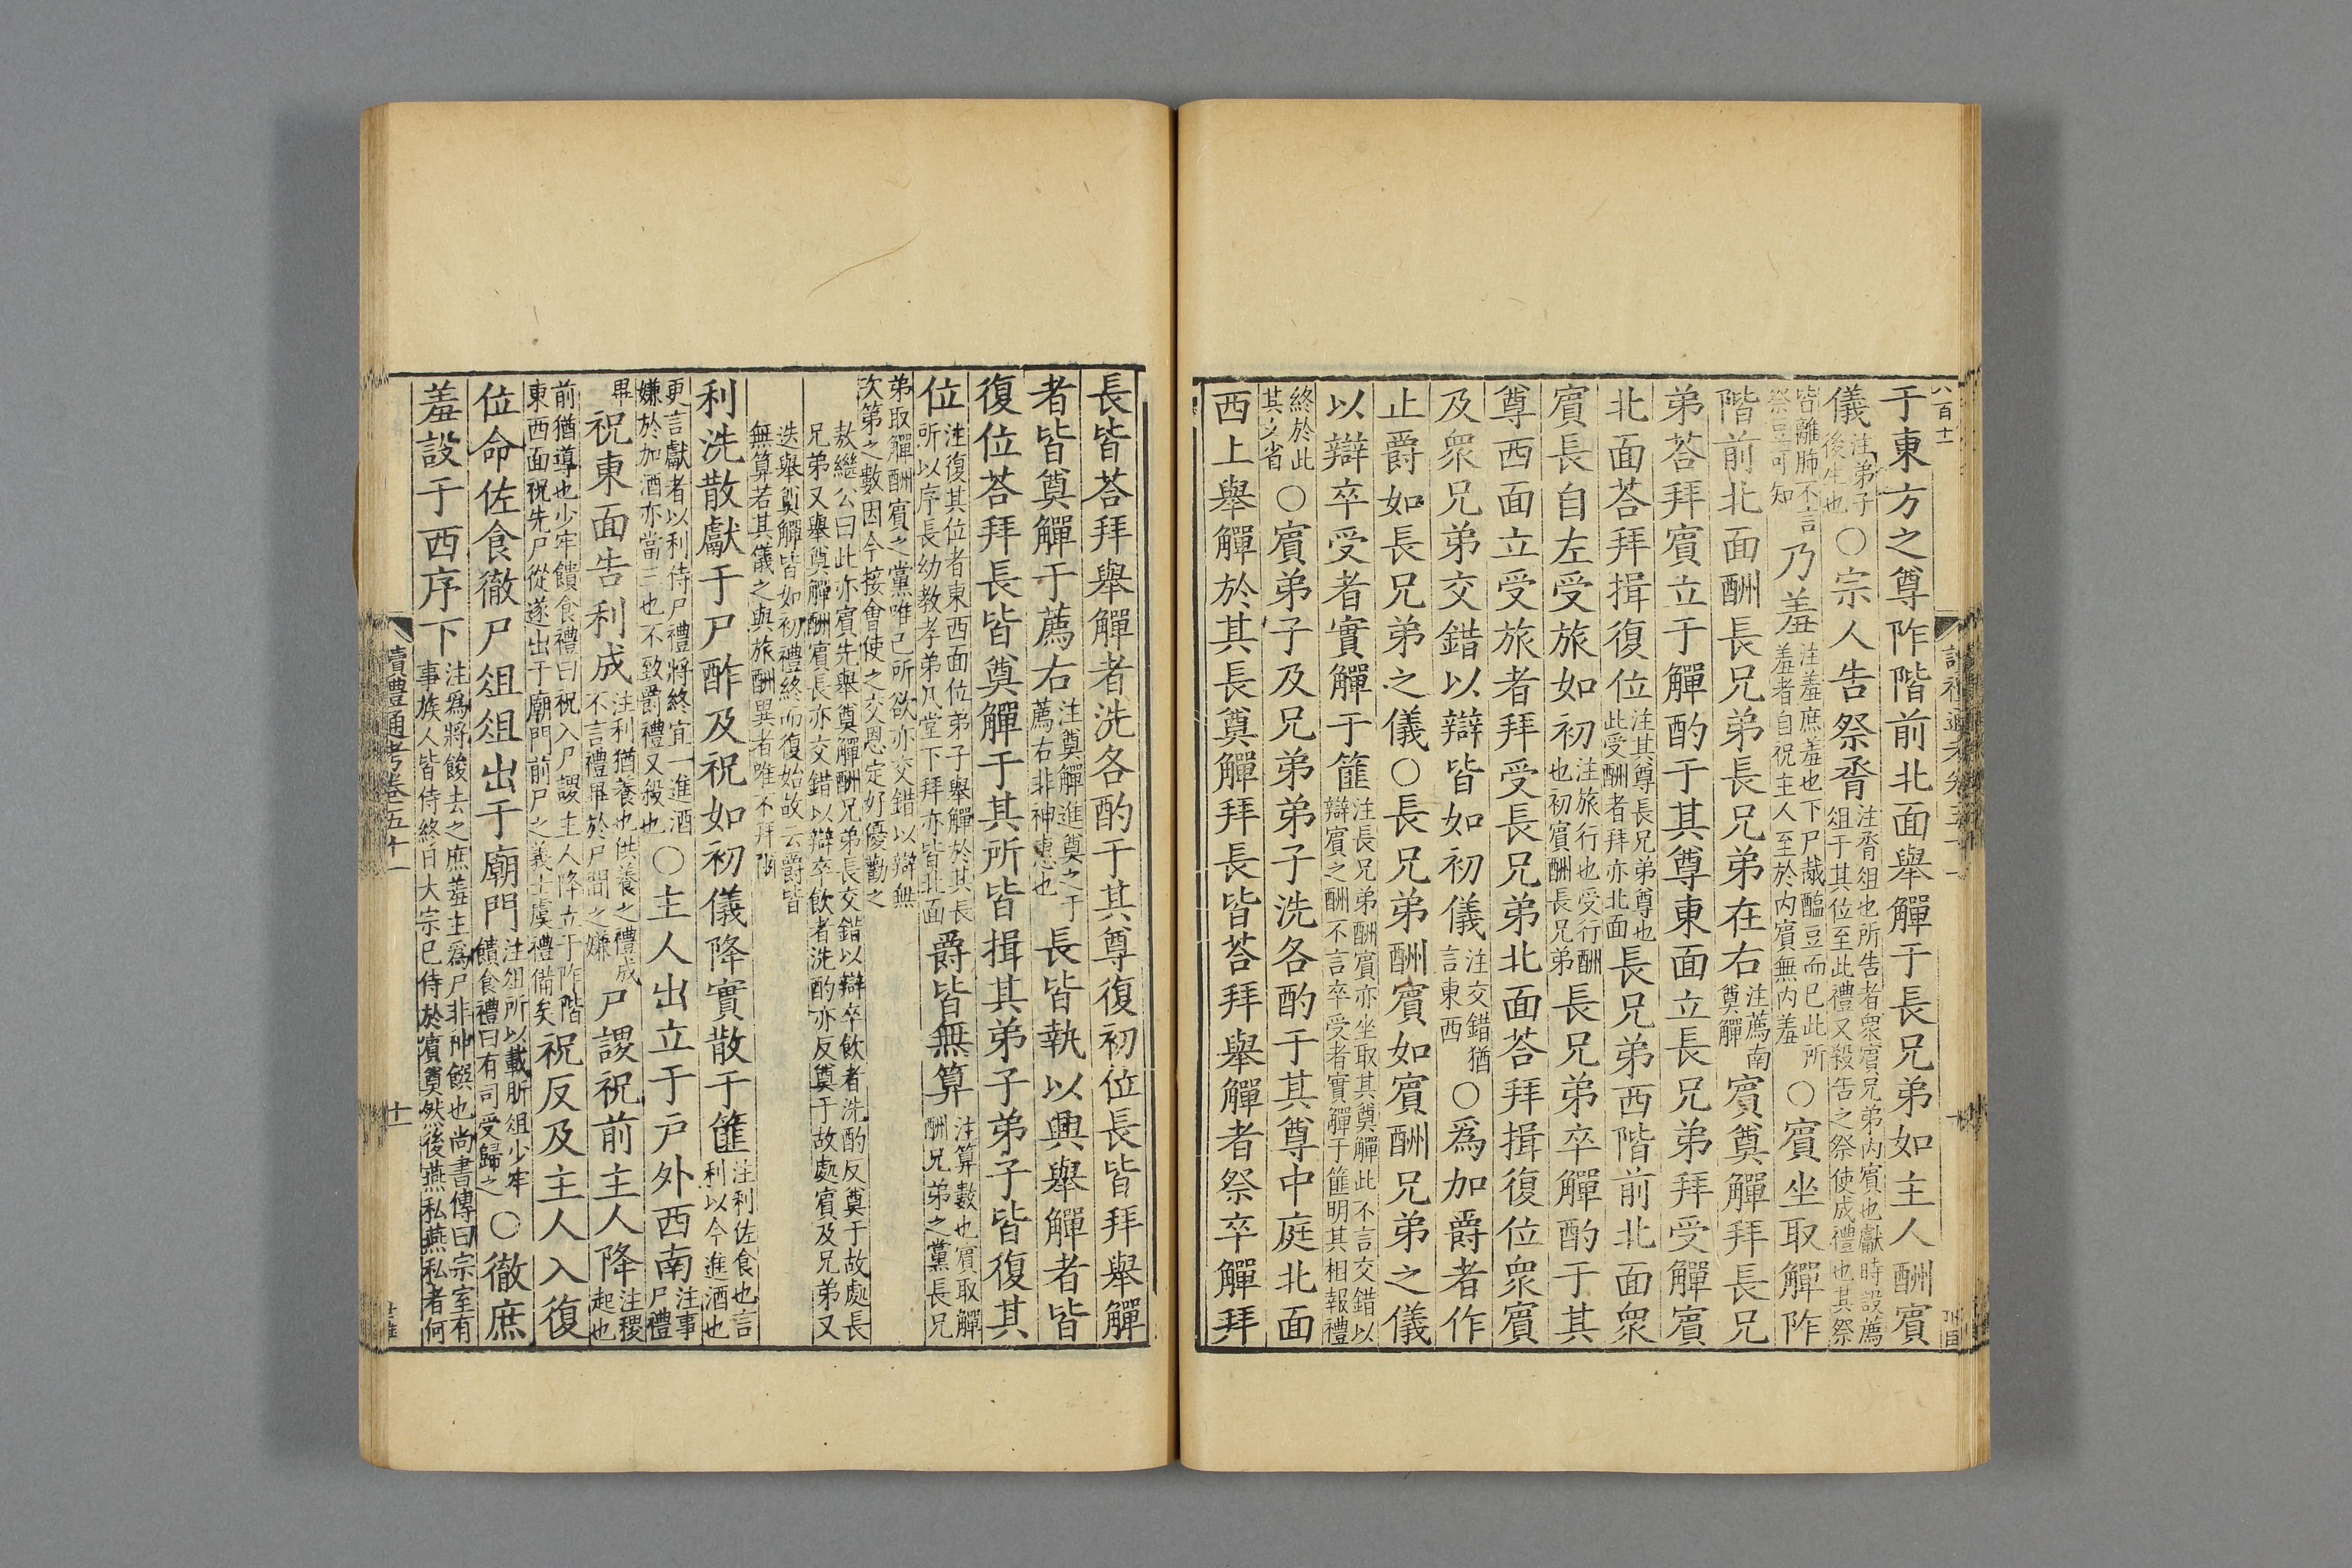 八百十
于東方之尊阼階前北面舉觶于長兄弟如主人酬賓
儀注弟子後生也○宗人告祭脀注脀俎也所告者衆賓兄弟內賓也獻時設薦俎于其位至此禮又殺告之祭使成禮也其祭
皆離肺不言祭豆可知乃羞注羞庶羞也下尸胾醢豆而已此所羞者自祝主人至於內賓無內羞○賓坐取觶阼
階前北面酬長兄弟長兄弟在右注薦南奠觶賓奠觶拜長兄
弟荅拜賓立于觶酌于其尊東面立長兄弟拜受觶賓
北面荅拜揖復位注其尊長兄弟尊也此受酬者拜亦北面長兄弟西階前北面衆
賓長自左受旅如初注旅行也受行酬也初賓酬長兄弟長兄弟卒觶酌于其
尊西面立受旅者拜受長兄弟北面荅拜揖復位衆賓
及衆兄弟交錯以辯皆如初儀注交錯猶言東西○爲加爵者作
止爵如長兄弟之儀○長兄弟酬賓如賓酬兄弟之儀
以辯卒受者實觶于篚注長兄弟酬賓亦坐取其奠觶此不言交錯以辯賓之酬不言卒受者實觶于篚明其相報禮
終於此其文省○賓弟子及兄弟弟子洗各酌于其尊中庭北面
西上舉觶於其長奠觶拜長皆荅拜舉觶者祭卒觶拜
長皆荅拜舉觶者洗各酌于其尊復初位長皆拜舉觶
者皆奠觶于薦右注奠觶進奠之于薦右非神惠也長皆執以興舉觶者皆
復位荅拜長皆奠觶于其所皆揖其弟子弟子皆復其
位注復其位者東西面位弟子舉觶於其長所以序長幼教孝弟凡堂下拜亦皆北面爵皆無算注算數也賓取觶酬兄弟之黨長兄
弟取觶酬賓之黨唯己所欲亦交錯以辯無次第之數因今接會使之交恩定好優勸之
敖繼公曰此亦賓先舉奠觶酬兄弟長交錯以辯卒飲者洗酌反奠于故處長兄弟又舉奠觶酬賓長亦交錯以辯卒飲者洗酌亦反奠于故處賓及兄弟又
迭舉奠觶皆如初禮終而復始故云爵皆無算若其儀之與旅酬異者唯不拜爾
利洗散獻于尸酢及祝如初儀降實散于篚注利佐食也言利以今進酒也
更言獻者以利待尸禮將終宜一進酒嫌於加酒亦當三也不致爵禮又殺也○主人出立于戶外西南注事尸禮
畢祝東面告利成注利猶養也供養之禮成不言禮畢於尸閒之嫌尸謖祝前主人降注稷起也
前猶導也少牢饋食禮曰祝入尸謖主人降立于阼階東西面祝先尸從遂出于廟門前尸之義士虞禮備矣祝反及主人入復
位命佐食徹尸俎俎出于廟門注俎所以載肵俎少牢饋食禮曰有司受歸之○徹庶
羞設于西序下注爲將餕去之庶羞主爲尸非神饌也尚書傳曰宗室有事族人皆侍終日大宗已侍於賓奠然後燕私燕私者何
讀禮通考卷五十一
十一